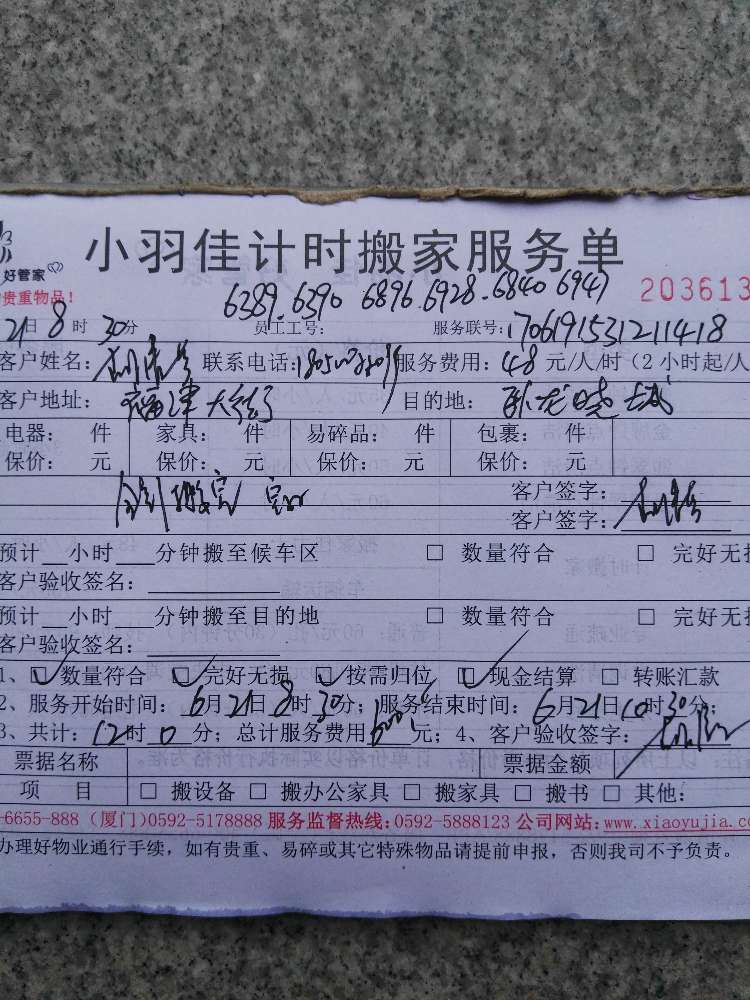 小羽佳计时搬家服务单
好管家
贵重物品！
6389.6390 6896.6928.6840 6947
203613
21日8时30分 员工工号： 服务联号：1706191531211418
客户姓名： 联系电话： 服务费用：48元/人/时（2小时起/人
客户地址：福津大街 目的地：卧龙晓城
电器： 件 家具： 件 易碎品： 件 包裹： 件
保价： 元 保价： 元 保价： 元 保价： 元
客户签字：
客户签字：
预计__小时___分钟搬至候车区 □ 数量符合 □ 完好无损
客户验收签名：
预计__小时___分钟搬至目的地 □ 数量符合 □ 完好无损
客户验收签名：
1、☑数量符合 ☑完好无损 ☑按需归位 ☑现金结算 □ 转账汇款
2、服务开始时间：6月21日8时30分；服务结束时间：6月21日10时30分；
3、共计：12时0分；总计服务费用 元；4、客户验收签字：
票据名称 票据金额
项 目 □ 搬设备 □ 搬办公家具 □ 搬家具 □ 搬书 □ 其他：
-6655-888（厦门)0592-5178888 服务监督热线:0592-5888123 公司网站:www.xiaoyujia.co
办理好物业通行手续，如有贵重、易碎或其它特殊物品请提前申报，否则我司不予负责。